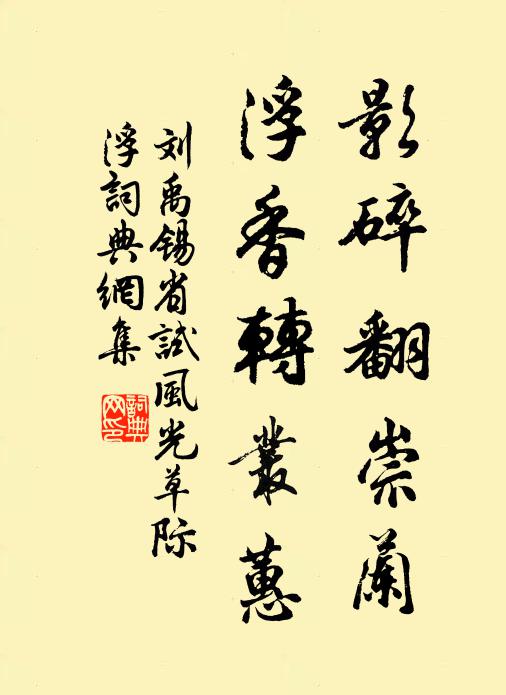 影碎翻崇蘭
浮香轉叢蕙
刘禹锡省試風光草际
浮詞典網集
詞典
网印